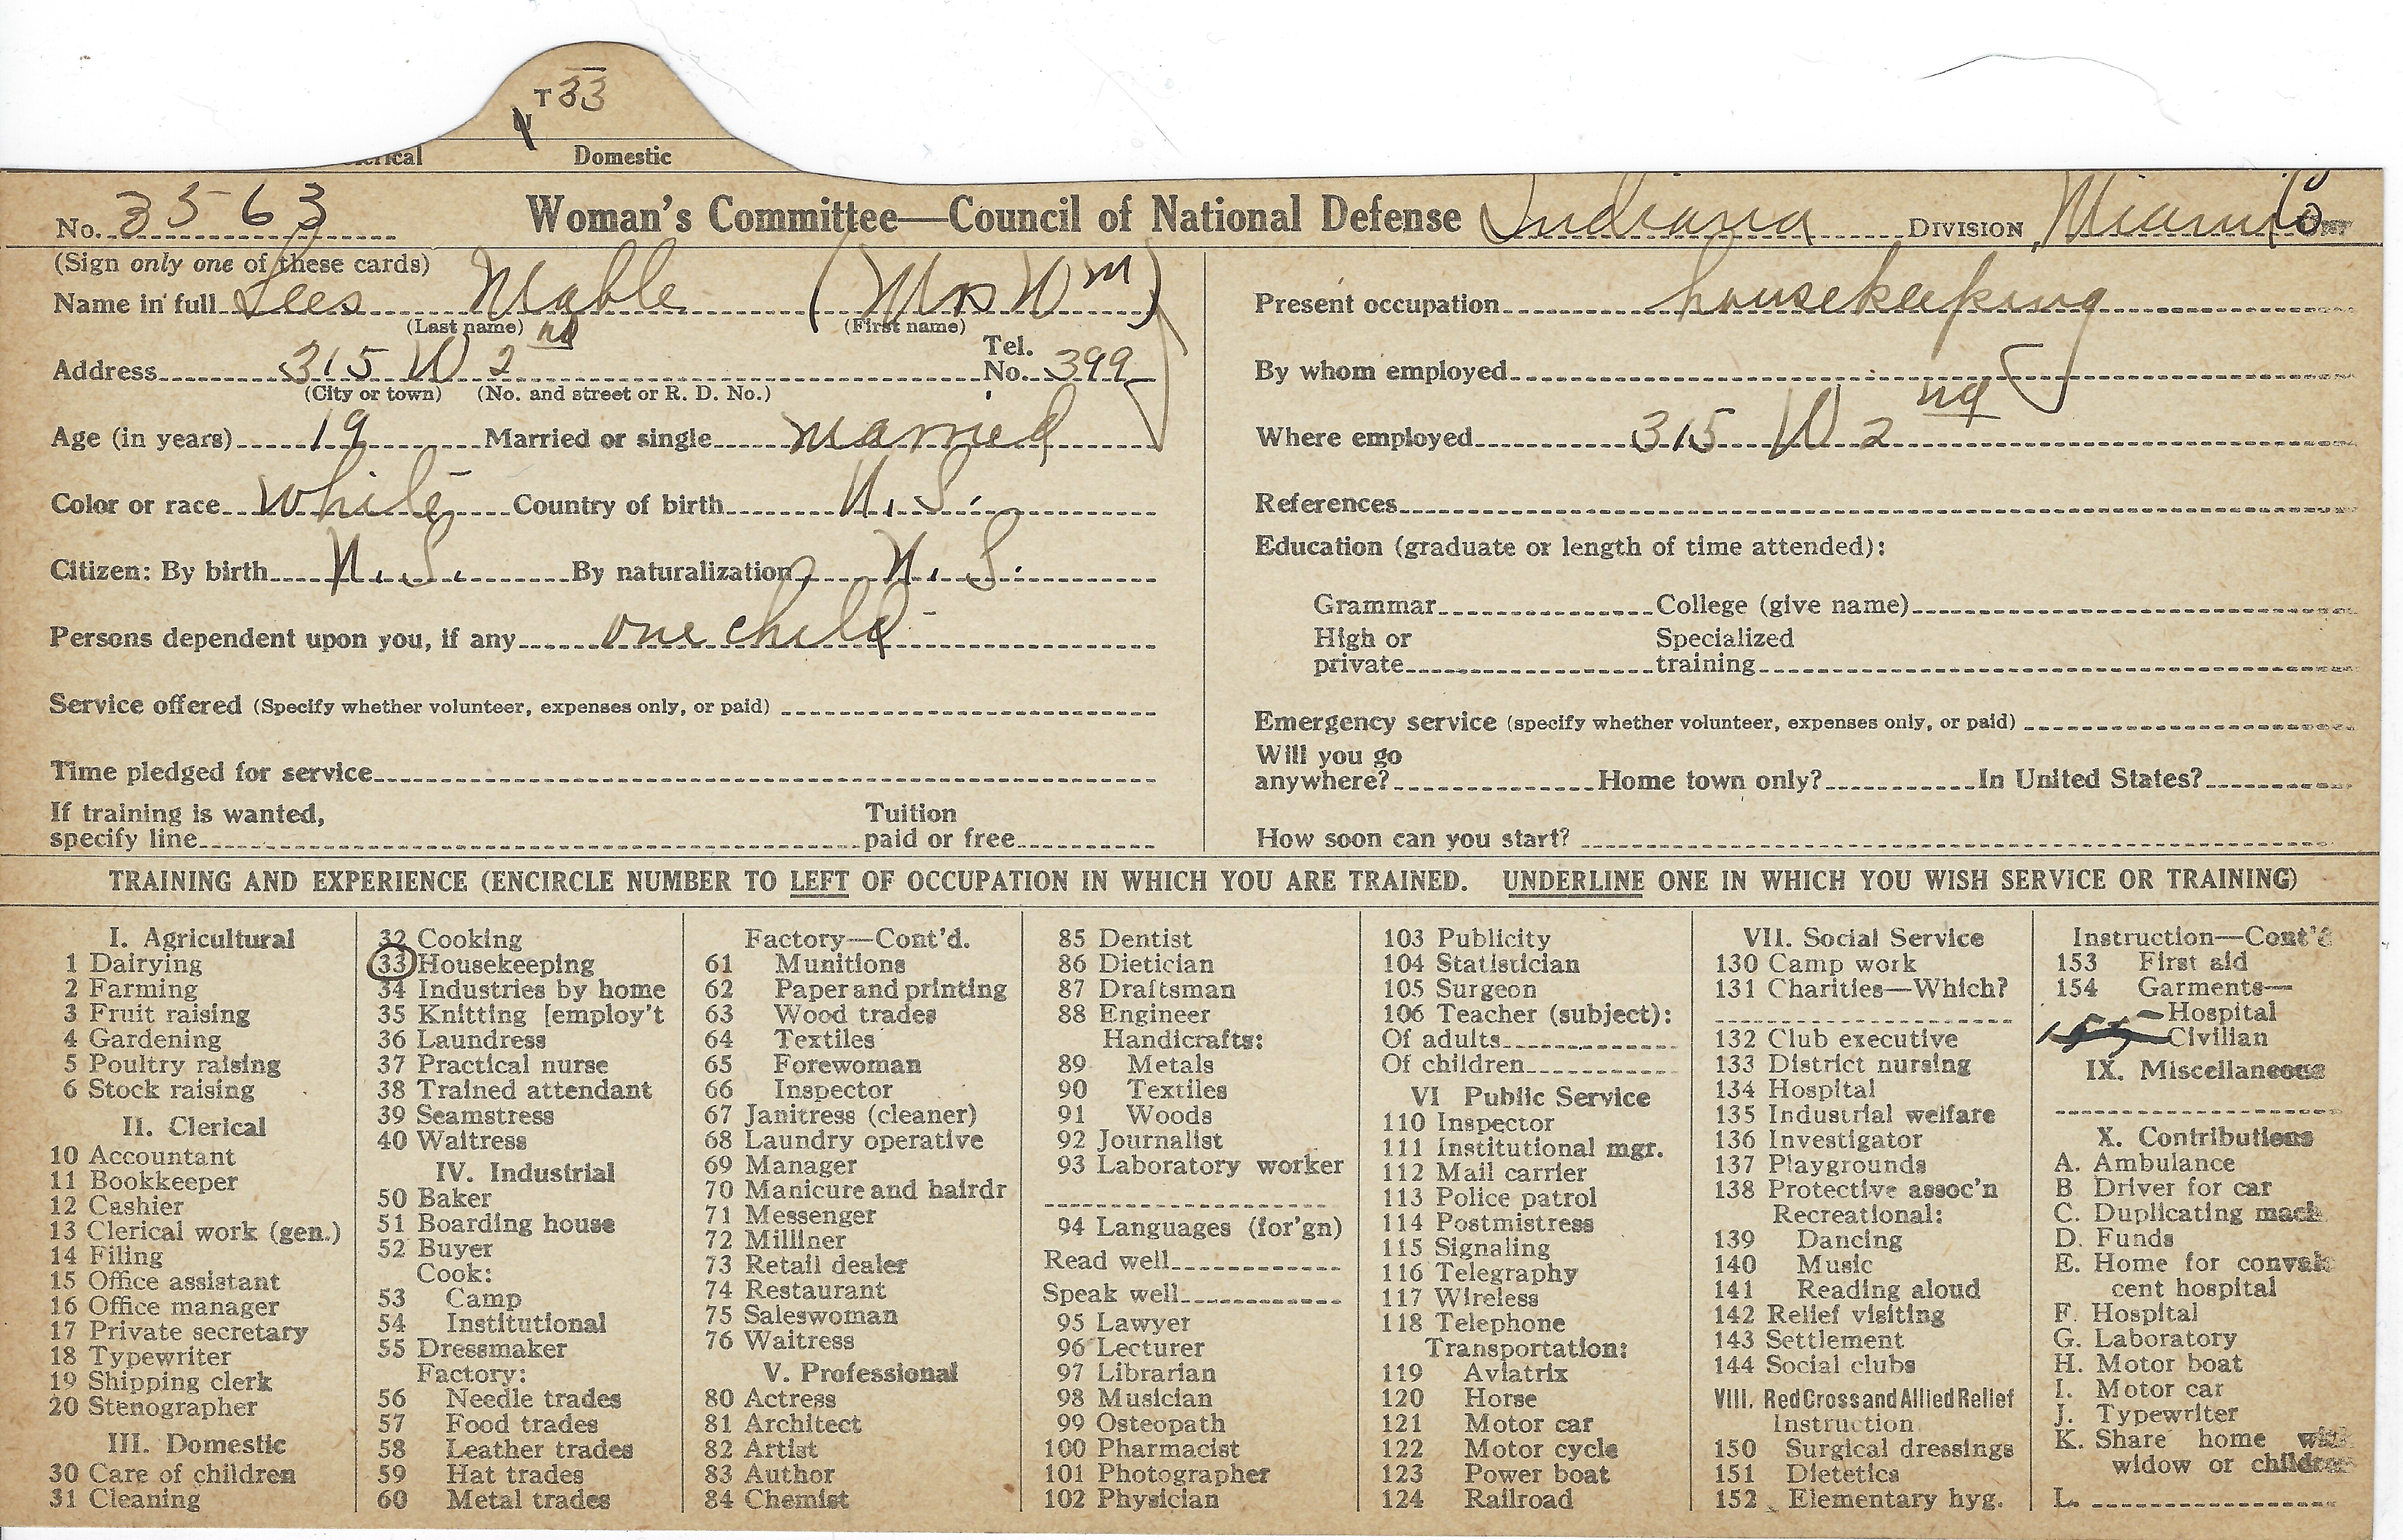 T 33
Domestic
No. 3563 Woman's Committee—Council of National Defense Indiana DIVISION, Miami Co
(Sign only one of these cards)
Name in full Lees Mable (Mrs Wm)
(Last name) (First name)
Address 315 W 2nd Tel. No. 399
(City or town) (No. and street or R. D. No.)
Age (in years) 19 Married or single married
Color or race White Country of birth U.S.
Citizen: By birth U.S. By naturalization U.S.
Persons dependent upon you, if any one child
Service offered (Specify whether volunteer, expenses only, or paid)
Time pledged for service
If training is wanted,
specify line Tuition paid or free
Present occupation housekeeping
By whom employed
Where employed 315 W 2nd
References
Education (graduate or length of time attended):
Grammar College (give name)
High or private Specialized training
Emergency service (specify whether volunteer, expenses only, or paid)
Will you go
anywhere? Home town only? In United States?
How soon can you start?
TRAINING AND EXPERIENCE (ENCIRCLE NUMBER TO LEFT OF OCCUPATION IN WHICH YOU ARE TRAINED. UNDERLINE ONE IN WHICH YOU WISH SERVICE OR TRAINING)
I. Agricultural
1 Dairying
2 Farming
3 Fruit raising
4 Gardening
5 Poultry raising
6 Stock raising
II. Clerical
10 Accountant
11 Bookkeeper
12 Cashier
13 Clerical work (gen.)
14 Filing
15 Office assistant
16 Office manager
17 Private secretary
18 Typewriter
19 Shipping clerk
20 Stenographer
III. Domestic
30 Care of children
31 Cleaning
32 Cooking
33 Housekeeping
34 Industries by home
35 Knitting [employ't
36 Laundress
37 Practical nurse
38 Trained attendant
39 Seamstress
40 Waitress
IV. Industrial
50 Baker
51 Boarding house
52 Buyer
Cook:
53 Camp
54 Institutional
55 Dressmaker
Factory:
56 Needle trades
57 Food trades
58 Leather trades
59 Hat trades
60 Metal trades
Factory—Cont'd.
61 Munitions
62 Paper and printing
63 Wood trades
64 Textiles
65 Forewoman
66 Inspector
67 Janitress (cleaner)
68 Laundry operative
69 Manager
70 Manicure and hairdr
71 Messenger
72 Milliner
73 Retail dealer
74 Restaurant
75 Saleswoman
76 Waitress
V. Professional
80 Actress
81 Architect
82 Artist
83 Author
84 Chemist
85 Dentist
86 Dietician
87 Draftsman
88 Engineer
Handicrafts:
89 Metals
90 Textiles
91 Woods
92 Journalist
93 Laboratory worker
94 Languages (for'gn)
Read well
Speak well
95 Lawyer
96 Lecturer
97 Librarian
98 Musician
99 Osteopath
100 Pharmacist
101 Photographer
102 Physician
103 Publicity
104 Statistician
105 Surgeon
106 Teacher (subject):
Of adults
Of children
VI Public Service
110 Inspector
111 Institutional mgr.
112 Mail carrier
113 Police patrol
114 Postmistress
115 Signaling
116 Telegraphy
117 Wireless
118 Telephone
Transportation:
119 Aviatrix
120 Horse
121 Motor car
122 Motor cycle
123 Power boat
124 Railroad
VII. Social Service
130 Camp work
131 Charities—Which?
132 Club executive
133 District nursing
134 Hospital
135 Industrial welfare
136 Investigator
137 Playgrounds
138 Protective assoc'n
Recreational:
139 Dancing
140 Music
141 Reading aloud
142 Relief visiting
143 Settlement
144 Social clubs
VIII. Red Cross and Allied Relief
Instruction
150 Surgical dressings
151 Dietetics
152 Elementary hyg.
Instruction—Cont'd
153 First aid
154 Garments—
Hospital
Civilian
IX. Miscellaneous
X. Contributions
A. Ambulance
B Driver for car
C. Duplicating mach
D. Funds
E. Home for convales
cent hospital
F. Hospital
G. Laboratory
H. Motor boat
I. Motor car
J. Typewriter
K. Share home with
widow or children
L.